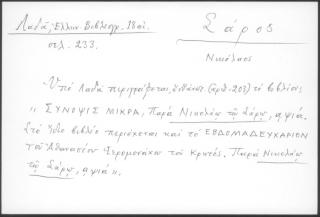 Λαδᾶ, Ἑλλην. Βιβλιογρ. 18 αἰ.
σελ. 233.
Σάρος
Νικόλαος
Ὑπὸ Λαδᾶ περιγράφεται, (ἀριθ. 207) τὸ βιβλίον
„ ΣΥΝΟΨΙΣ ΜΙΚΡΑ, Παρὰ Νικολάῳ τῷ Σάρῳ, αψιά.
Στὸ ἴδιο βιβλίο περιέχεται καὶ τὸ ΕΒΔΟΜΑΔΕΥΧΑΡΙΟΝ
τοῦ Ἀθανασίου Ἱερομονάχου τοῦ Κρητός. Παρὰ Νικολάῳ
τῷ Σάρῳ, αψιά".